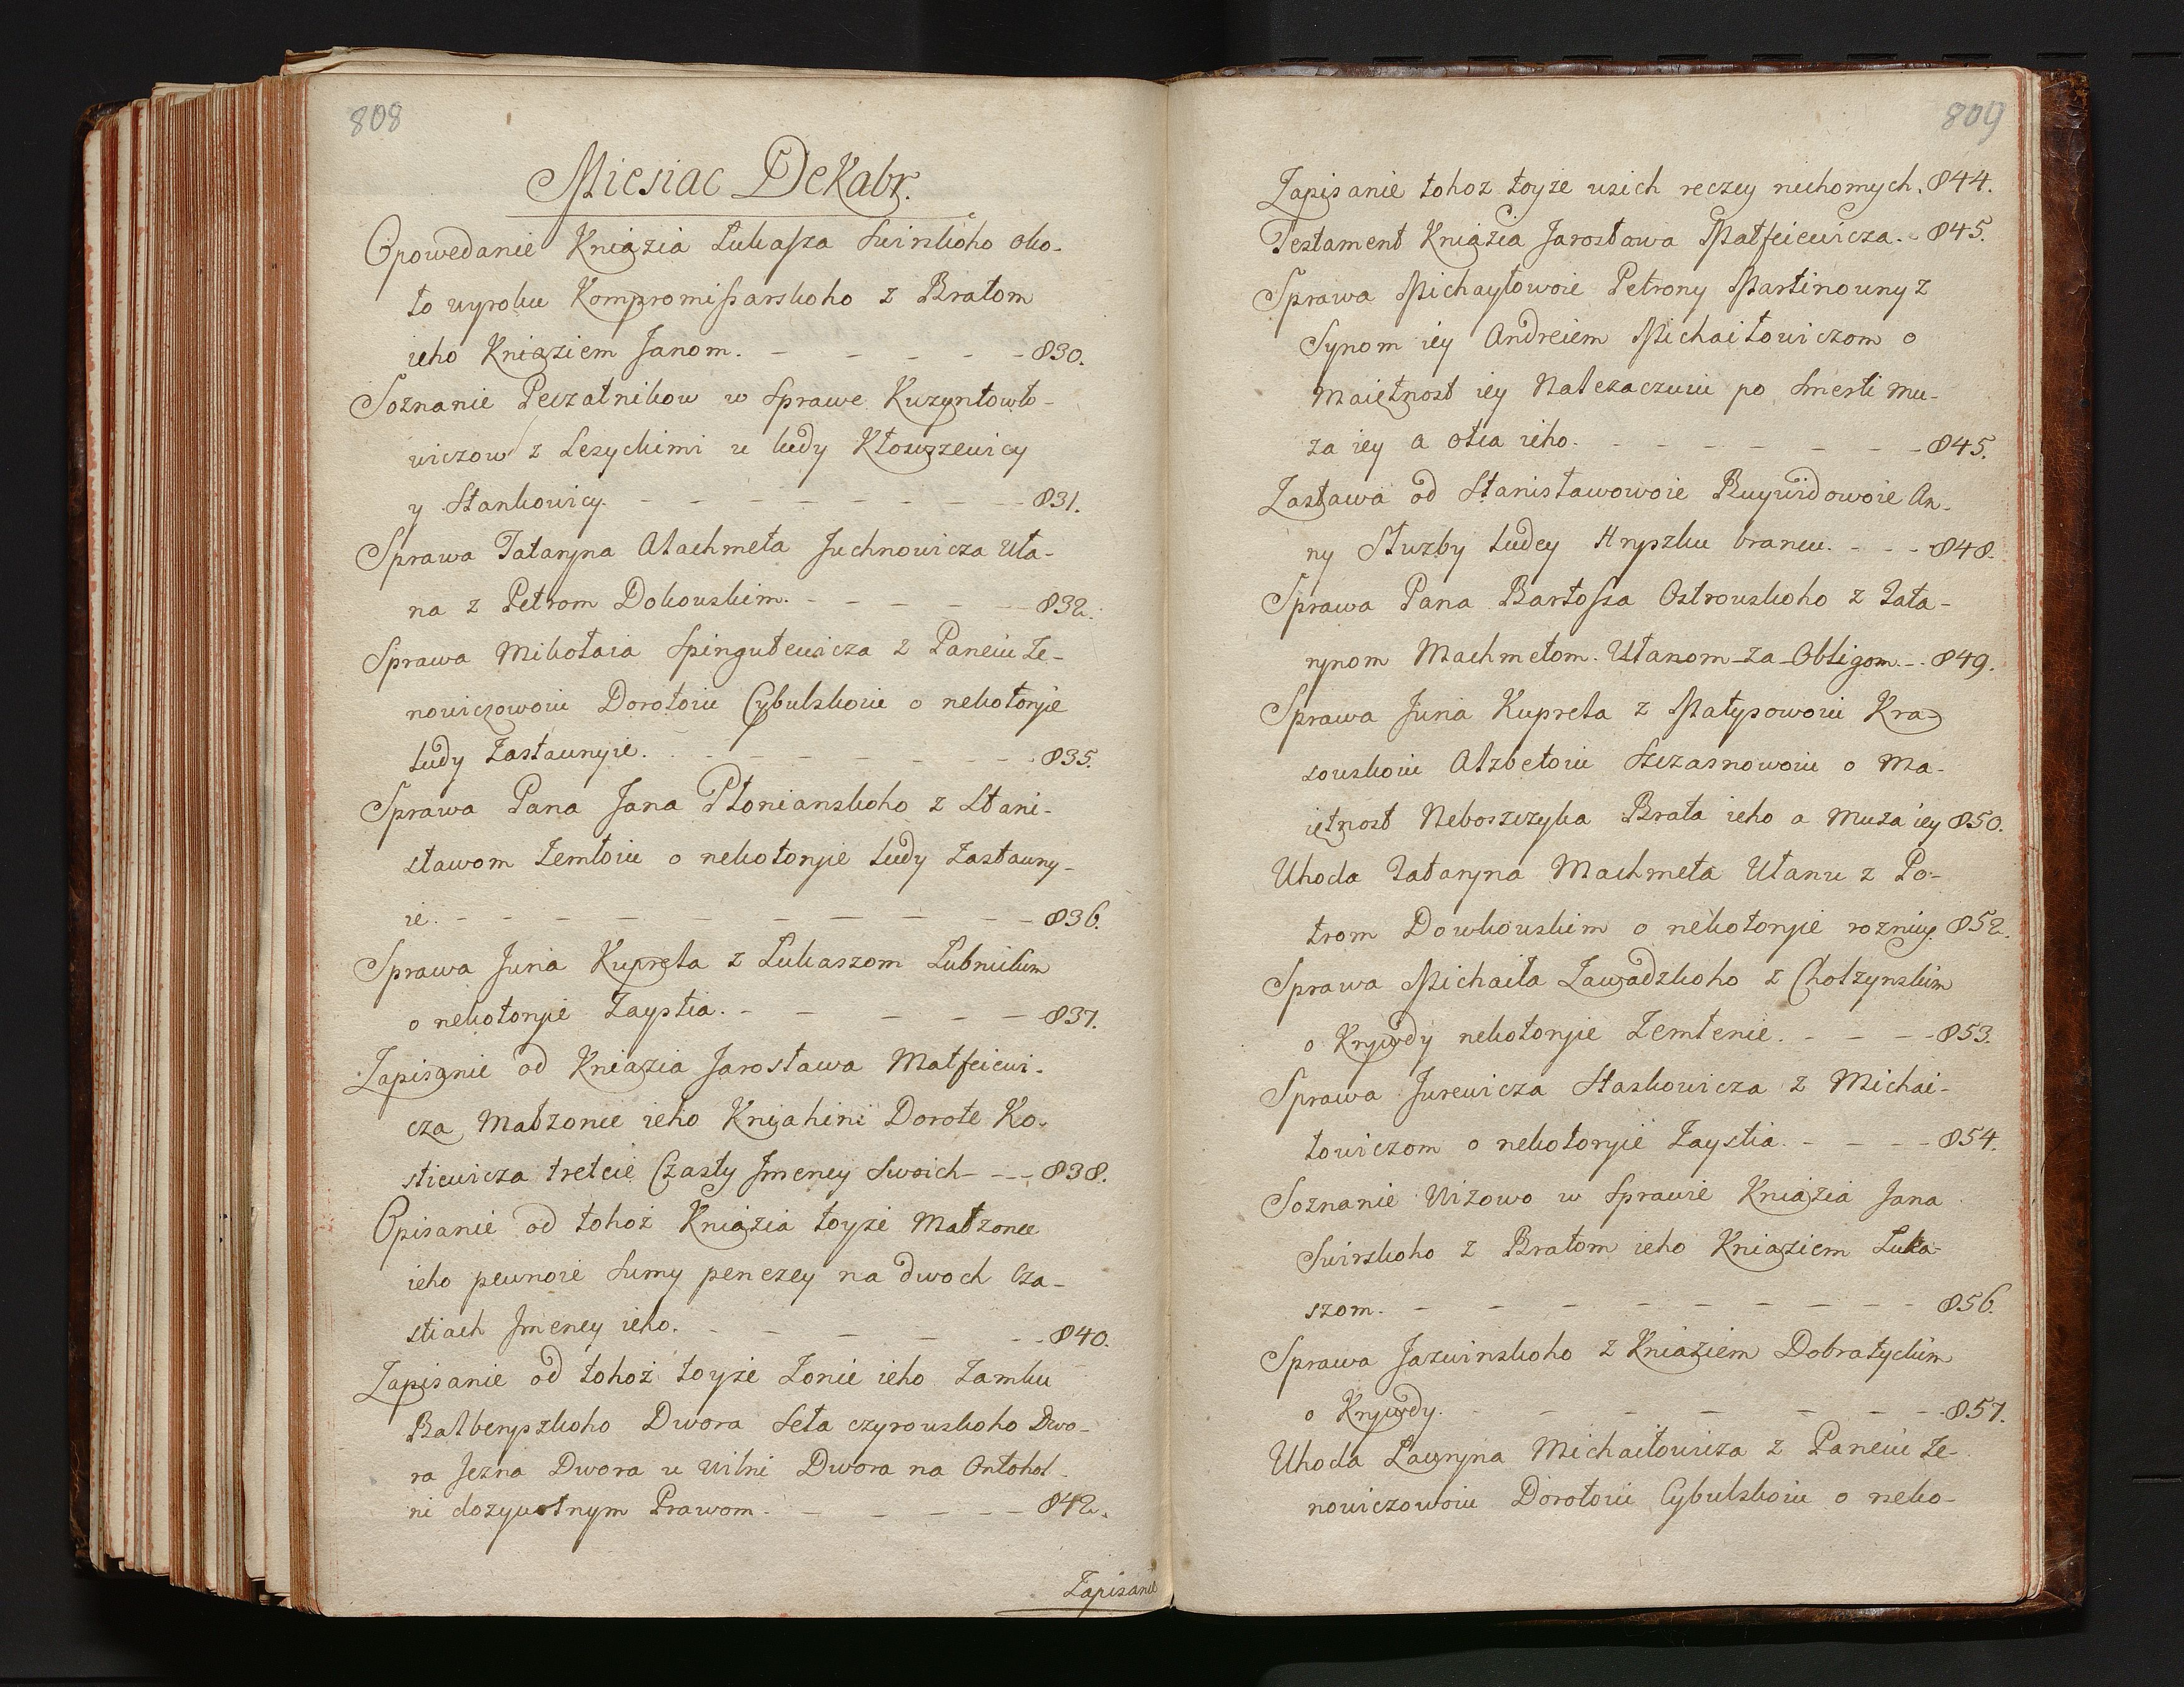 808
Miesiac Dekabr.
Opowedanie Kniazia Łukasza Swirskoho oko-
ło wyroku Kompromissarskoho z Bratom
ieho Kniaziem Janom. - - - - - 830.
Soznanie Peczatnikow w Sprawe Kuzyntowto-
wiczow z Lesyckimi u ludy Kłowzewicy
y Stankowicy. - - - - - - - 831.
Sprawa Tataryna Atachmeta Juchnowicza Uła-
na z Petrom Dokowskim. - - - - - 832.
Sprawa Mikołaia Spingutewicza z Paneiu Ze-
nowiczowoiu Dorotoiu Cybulskoiu o nekotoryie
ludy Zastawnyie. - - - - - - - 835.
Sprawa Pana Jana Płonianskoho z Stani-
sławom Zemłoiu o nekotoryie ludy Zastawny-
ie. - - - - - - - - - 836.
Sprawa Juria Kupreta z Łukaszom Lubnickim
o nekotoryie Zaystia. - - - - - 837.
Zapisanie od Kniazia Jarosława Matfeiewi-
cza Małzonce ieho Kniahini Dorote Ko-
stiewicza tretcie Czasty Jmeney Swoich - - - 838.
Opisanie od tohoż Kniazia toyże Małzonce
ieho pewnoie Sumy penezey na dwoch Cza-
stiach Jmeney ieho. - - - - - - 840.
Zapisanie od tohoż toyże Zonie ieho Zamku
Balberyszkoho Dwora Seła czyrowskoho Dwo-
ra Jezna Dwora u Wilni Dwora na Ontokol-
ni dozywotnym Prawom. - - - - - 842.
Zapisanie
809
Zapisanie tohoz toyze usich reczey ruchomych. 844.
Testament Kniazia Jarosława Matfeiewicza. - 845.
Sprawa Michayłowoie Petrony Martinowny z
Synom iey Andreiem Michaiłowiczom o
Maiętnost iey Należaczuiu po Smerti mu-
za iey a otca ieho. - - - - - - 845.
Zastawa od Stanisławowoie Ruywidowoie An-
ny Służby ludey Hryszku brancu. - - - 848.
Sprawa Pana Bartossa Ostrowskoho z Tata-
rynom Machmetom. Ułanom - za - Obligom. - - 849.
Sprawa Juria Kupreta z Matysowoiu Kra-
sowskoiu Alzbetoiu Szczasnowoiu o Ma-
iętnost Neboszczyka Brata ieho a Muża iey 850.
Uhoda Tataryna Machmeta Ułanu z Po-
trom Dowkowskim o nekotoryie roznicy. 852.
Sprawa Michaiła Zawadzkoho z Chołzynskim
o Krywdy nekotoryie Zemlenie. - - - - 853.
Sprawa Jurewicza Staskowicza z Michai-
łowiczom o nekotoryie Zaystia. - - - - 854.
Soznanie Wizowo w Sprawie Kniazia Jana
Swirskoho z Bratom ieho Kniaziem Luka-
szom. - - - - - - - - 856.
Sprawa Jazwinskoho z Kniaziem Dobratyckim
o Krywdy. - - - - - - - 857.
Uhoda Lawryna Michaiłowicza z Paneiu Ze-
nowiczowoiu Dorotoiu Cybulskoiu o neko-